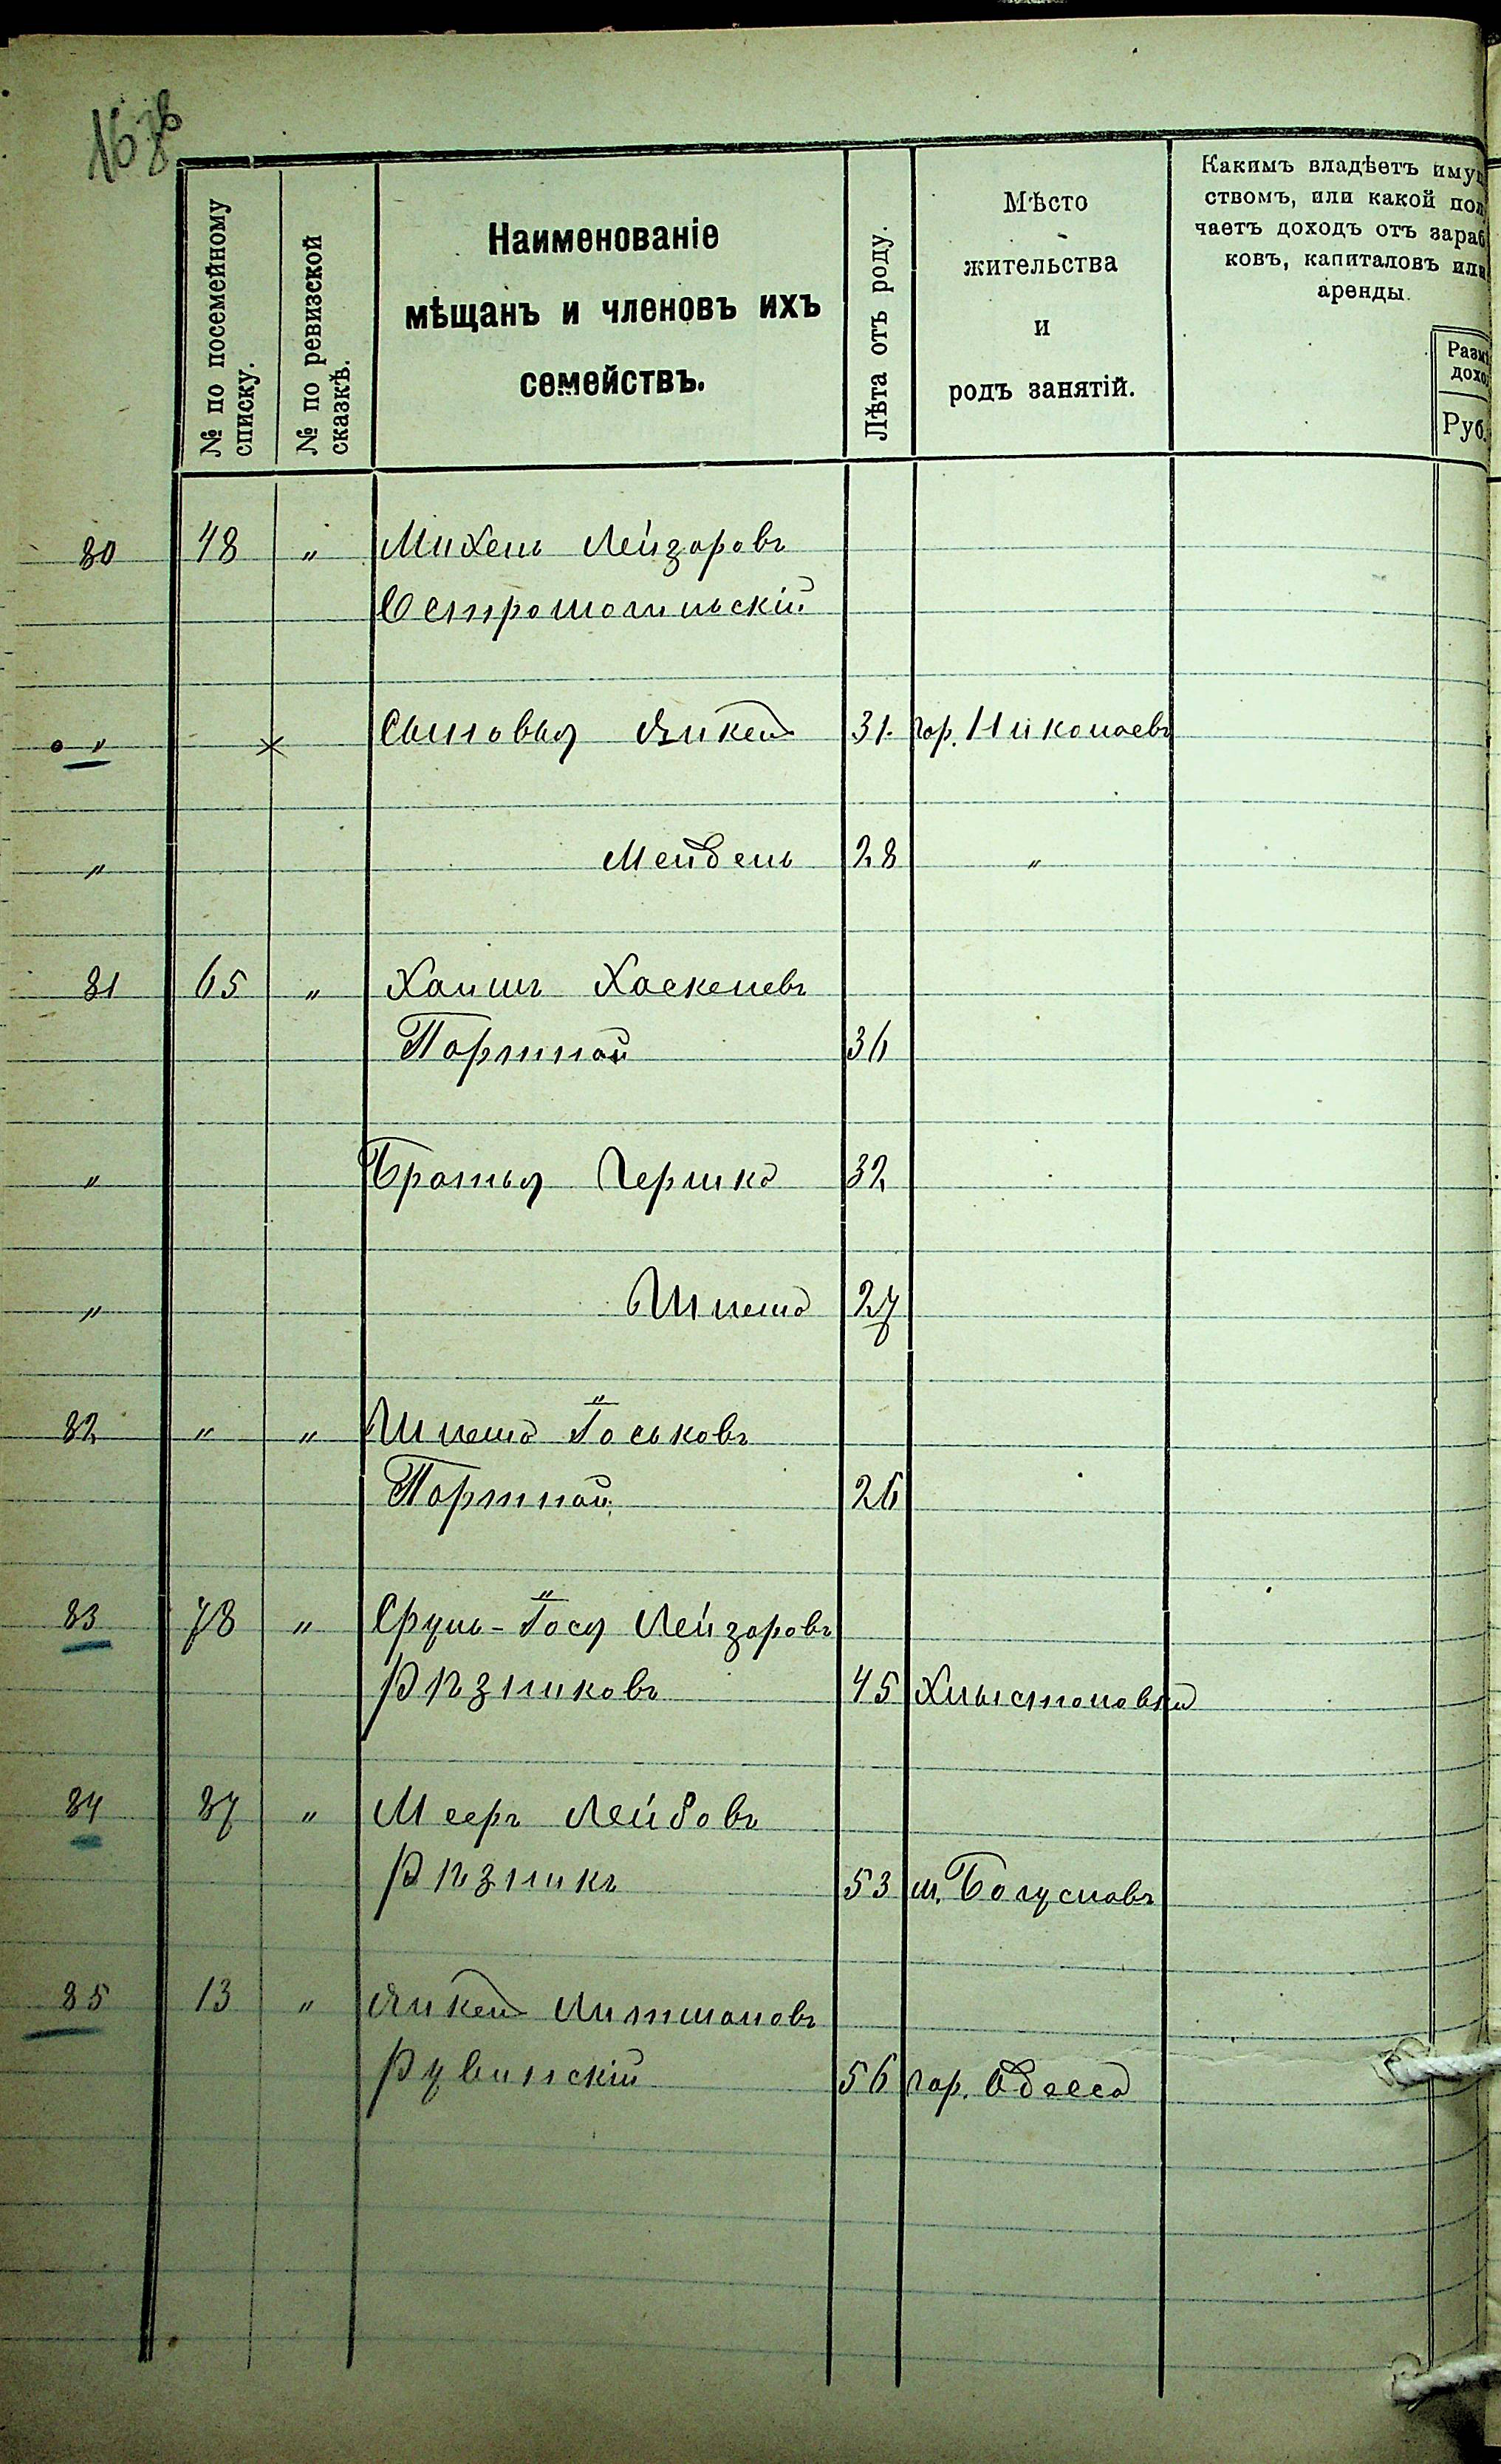 № по посемейному списку.
№ по ревизской сказкѣ.
Наименованіе
мѣщанъ и членовъ ихъ
семействъ.
Лѣта отъ роду.
Мѣсто
жительства
и
родъ занятій.
Какимъ владѣетъ имущ
ствомъ, или какой пол
чаетъ доходъ отъ зараб
ковъ, капиталовъ или
аренды.
Разм
дохо
Руб.
80 48 " Михель Лейзоровъ
Остромогильскій
" Сыновья Янкель 31. гор. Николаевъ
" Мендель 28 "
81 65 " Хаимъ Хаскелевъ
Портной 36
" Братья Гершко 32
" Шлема 27
82 " " Шлема Іоськовъ
Портной 26
83 78 " Сруль-Іося Лейзоровъ
Рѣзниковъ 45 Хлыстоновка
84 87 " Мееръ Лейбовъ
Рѣзникъ 53 м. Богуславъ
85 13 " Янкель Литмановъ
Рувинскій 56 гор. Одесса